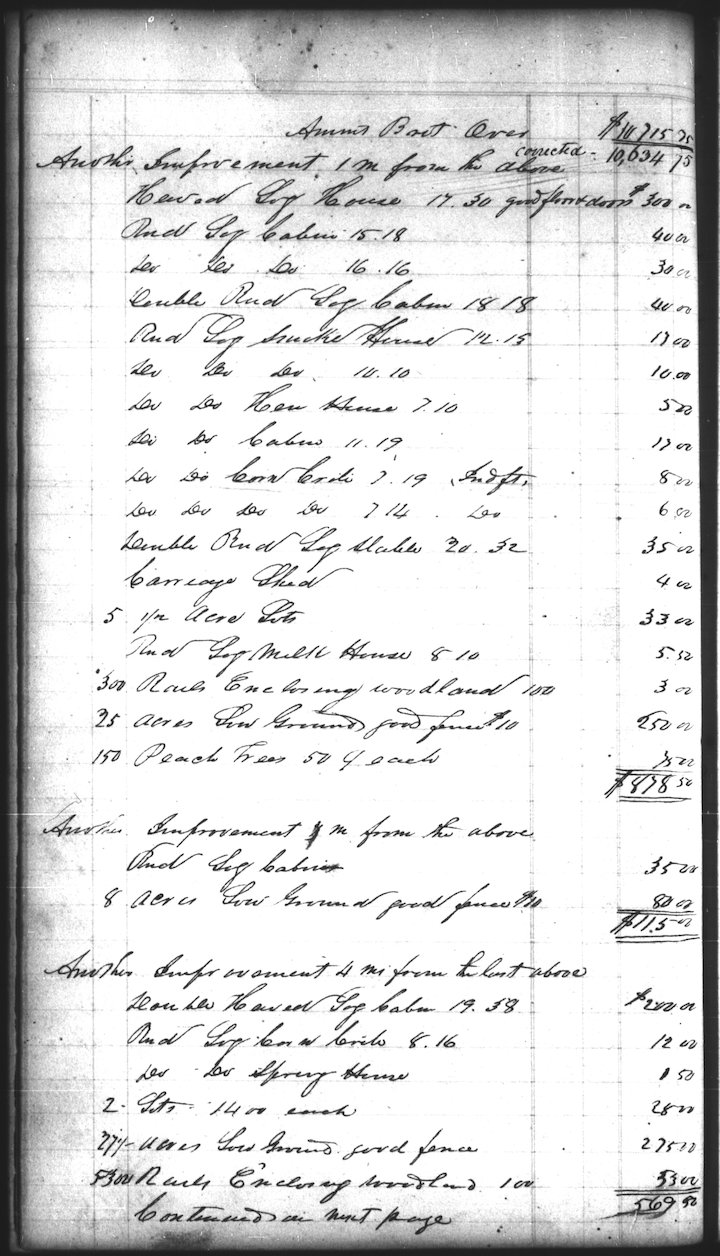 Amount Brot Over $10,715 75
corrected - 10,634 75
Another Improvement 1 m from the above
Hewed Log House 17.30 good floor & doors $300 00
Rnd Log Cabin 15.18 40 00
Do Do Do 16.16 30 00
Double Rnd Log Cabin 18 18 40 00
Rnd Log Smoke House 12.15 17 00
Do Do Do 10.10 10.00
Do Do Hen House 7.10 5 00
Do Do Cabin 11.19 17 00
Do Do Corn Crib 7.19 Ind ft. 8 00
Do Do Do Do 7 14 Do 6 00
Double Rnd Log Stable 20.32 35 00
Carreage Shed 4 00
5 1/2 Acre Lots 33 00
Rnd Log Milk House 8 10 5.50
300 Rails Enclosing woodland 100 3 00
25 acres Low Ground good fence $10 250 00
150 Peach Trees 50 ¢ each 75 00
$878 50
Another Improvement m from the above
Rnd Log Cabin 35 00
8 acres Low Ground good fence $10 80 00
$115 00
Another Improvement 4 ms from the last above
Double Hewed Log Cabin 19.38 $200 00
Rnd Log Corn Crib 8.16 12 00
Do Do Spring House 1 50
2 Lots 14 00 each 28 00
27½ acres Low Ground good fence 275 00
5300 Rails Enclosing woodland 100 53 00
569 50
Continued on next page